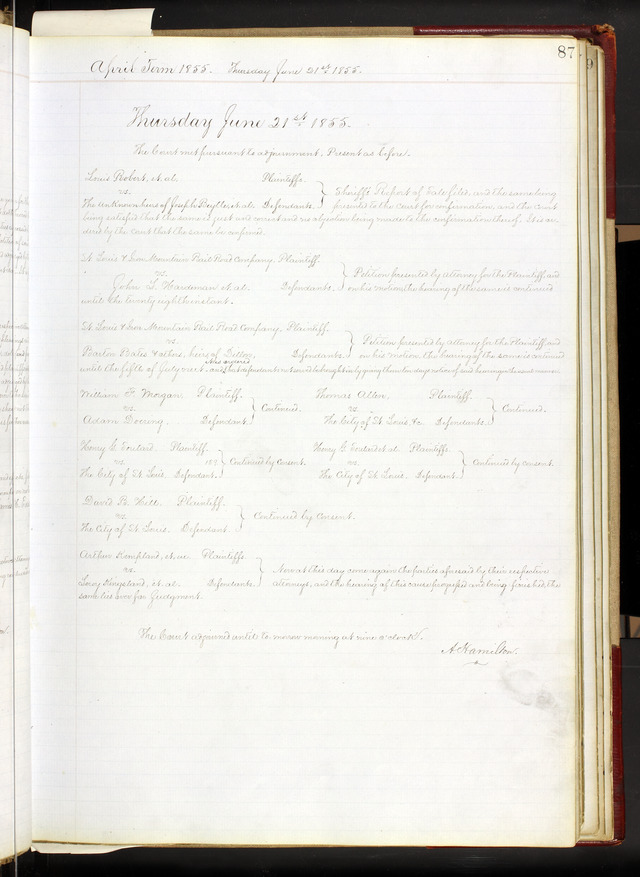 87
April Term 1855. Thursday June 21st 1855.
Thursday June 21st 1855.
The Court met pursuant to adjournment. Present as before.
Louis Robert, et al. Plaintiffs.
vs.
The unknown heirs of Joseph et al. Defendants. } Sheriffs Report of Sale filed, and the same being
presented to the Court for confirmation, and the Court
being satisfied that the same is just and correct and no objection being made to the confirmation thereof. It is or-
dered by the Court that the same be confirmed.
St. Louis & Iron Mountain Rail Road Company. Plaintiff.
vs.
John L. Hardeman et al. Defendants. } Petition presented by Attorney for the Plaintiff and
on his motion the hearing of the same is continued
until the twenty eighth instant.
St. Louis & Iron Mountain Rail Road Company. Plaintiff.
vs.
Barton Bates & others, heirs of Defendants. } Petition presented by Attorney for the Plaintiff and
on his motion, the hearing of the same is continued
until the fifth of July next and that defendants not served be brought in by giving them ten days notice of said hearing in the usual manner.
William F. Morgan Plaintiff.
vs.
Adam Doering. Defendant. } Continued.
Thomas Allen. Plaintiff.
vs.
The City of St. Louis, &c. Defendants. } Continued.
Henry G. Soulard. Plaintiff.
vs.
The City of St. Louis. Defendant. } Continued by consent.
Henry G. Soulard et al. Plaintiffs.
vs.
The City of St. Louis. Defendant. } Continued by consent.
David B. Hill. Plaintiff.
vs.
The City of St. Louis. Defendant. } Continued by consent.
Arthur et ux. Plaintiffs.
vs.
Leroy Kingsland, et al. Defendants. } Now at this day come again the parties aforesaid by their respective
attorneys, and the hearing of this cause progressed and being finished, the
same lies over for Judgment.
The Court adjourned until to morrow morning at nine o'clock.
A. Hamilton.